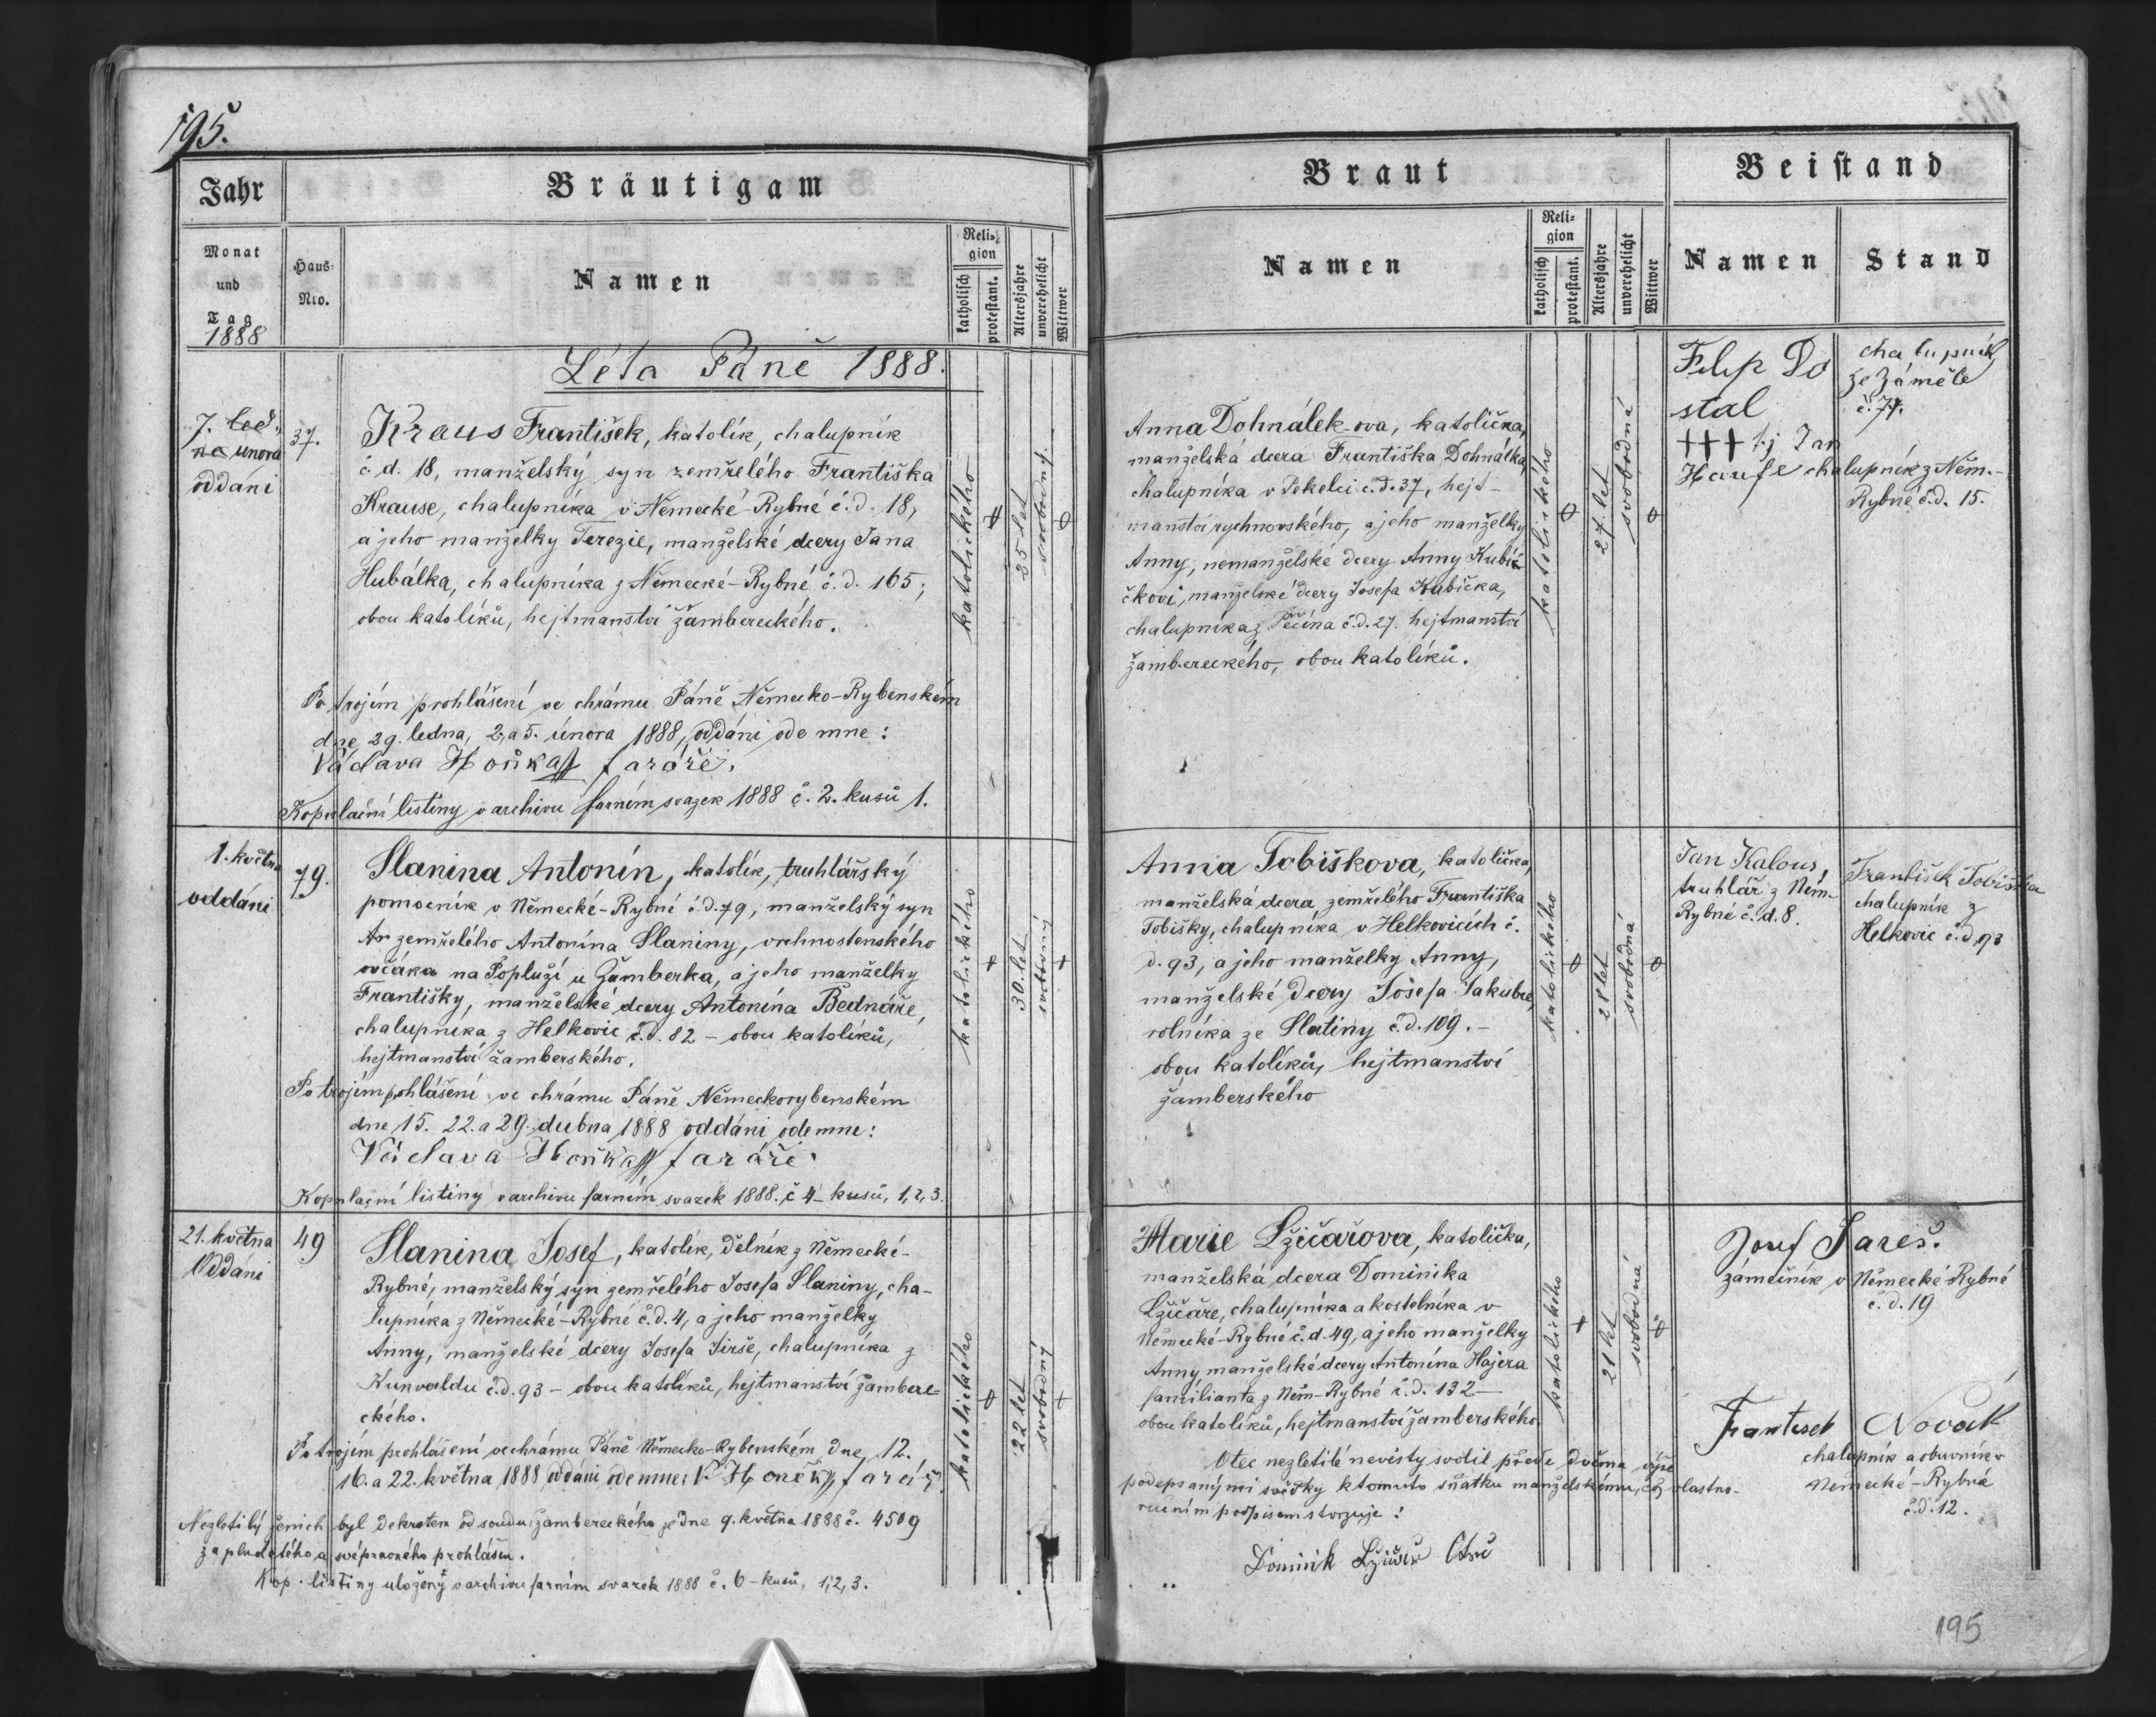 195.
Jahr
Bräutigam
Monat
und
Tag
1888
Haus-
Nro.
Namen
Reli-
gion
katholisch
protestant.
Altersjahre
unverehelicht
Wittwer
Léta Páně 1888.
7. led-
na unora
oddáni
37.
Kraus František, katolík, chalupník
č. d. 18, manželský syn zemřelého Františka
Krause, chalupníka v Německé-Rybné č. d. 18,
a jeho manželky Terezie, manželské dcery Jana
Hubálka, chalupníka z Německé-Rybné č. d. 165;
obou katolíků, hejtmanství žambereckého.
katolického
25 let
svobodný.
Po trojím prohlášení ve chrámu Páně Německo-Rybenském
dne 29. ledna, 2, a 5. února 1888, oddáni ode mne:
Václava Hoňka faráře.
Kopulační listiny v archivu farním svazek 1888 č. 2. kusů 1.
1. květn
oddáni
79.
Slanina Antonín, katolík, truhlářský
pomocník v Německé-Rybné č. d. 79, manželský syn
An zemřelého Antonína Slaniny, vrchnostenského
ovčáka na Popluží u Žamberka, a jeho manželky
Františky, manželské dcery Antonína Bednáře,
chalupníka z Helkovic č. d. 82 – obou katolíků,
hejtmanství žamberského.
katolického
30. let
svobodný
Po trojím pohlášení ve chrámu Páně Německorybenském
dne 15. 22. a 29. dubna 1888 oddáni odemne:
Václava Hoňka faráře
Kopulační listiny v archivu farním svazek 1888. č 4– kusů, 1, 2, 3.
21. května
Oddáni
49
Slanina Josef, katolík, dělník z Německé-
Rybné, manželský syn zemřelého Josefa Slaniny, cha-
lupníka z Německé-Rybné č. d. 4, a jeho manželky
Anny, manželské dcery Josefa Jirše, chalupníka z
Kunvaldu č. d. 93 – obou katolíků, hejtmanství žambere-
ckého.
katolického
22 let
svobodný
Po trojím prohlášení ve chrámu Páně Německo-Rybenském dne, 12.
16. a 22. května 1888 oddáni odemne:
Nezletilý ženich byl dekretem od soudu žambereckého ze dne 9. května 1888 č. 4509
za plnoletého a svéprávného prohlášen.
Kop. listiny uloženy v archivu farním svazek 1888 č. 6 – kusů, 1, 2, 3.
Braut
Beistand
Namen
Reli-
gion
katholisch
protestant.
Altersjahre
unverehelicht
Wittwer
Namen
Stand
Anna Dohnálek-ova, katolička,
manželská dcera Františka Dohnálka,
chalupníka v Pekelci č. d. 37, hejt-
manství rychnovského, a jeho manželky
Anny, nemanželské dcery Anny Kubi-
čkovi, manželské dcery Josefa Kubíčka,
chalupníka z Pěčína č. d. 27. hejtmanství
žambereckého, obou katolíků.
katolického
27. let
svobodná
Filip Do
stal
chalupník
ze Záměle
č. 77.
+++ t. j. Jan
Haufe chalupník z Něm.-
Rybné č. d. 15.
Anna Tobiškova, katolička,
manželská dcera zemřelého Františka
Tobišky, chalupníka v Helkovicích č.
d. 93, a jeho manželky Anny,
manželské dcery Josefa Jakubce,
rolníka ze Slatiny č. d. 109. –
obou katolíků, hejtmanství
žamberského
katolického
28 let
svobodná
Jan Kalous,
truhlář z Něm.
Rybné č. d. 8.
František Tobiška
chalupník z
Helkovic č. d 93
Marie Lžičařova, katolička,
manželská dcera Dominika
Lžičáře, chalupníka a kostelníka v
Německé-Rybné č. d. 49, a jeho manželky
Anny manželské dcery Antonína Hajera
familianta z Něm-Rybné č. d. 132 –
obou katolíků, hejtmanství žamberského.
katolického
21 let
svobodná
Josef Sareš.
zámečník v Německé Rybné
č. d. 19
Frantisek Novák
chalupník a obuvník v
Německé-Rybné
č. d. 12.
Otec nezletilé nevěsty svolil přede dvěma výše
podepsanými svědky k tomuto sňatku manželskému, což vlastno-
ručním podpisem stvrzuje:
Dominik Lžičař Otec
195